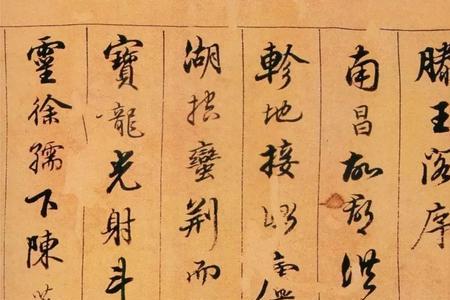 滕王閣序
南昌故郡洪
軫地接衡廬
湖控蠻荆而
寶龍光射斗
靈徐孺下陳